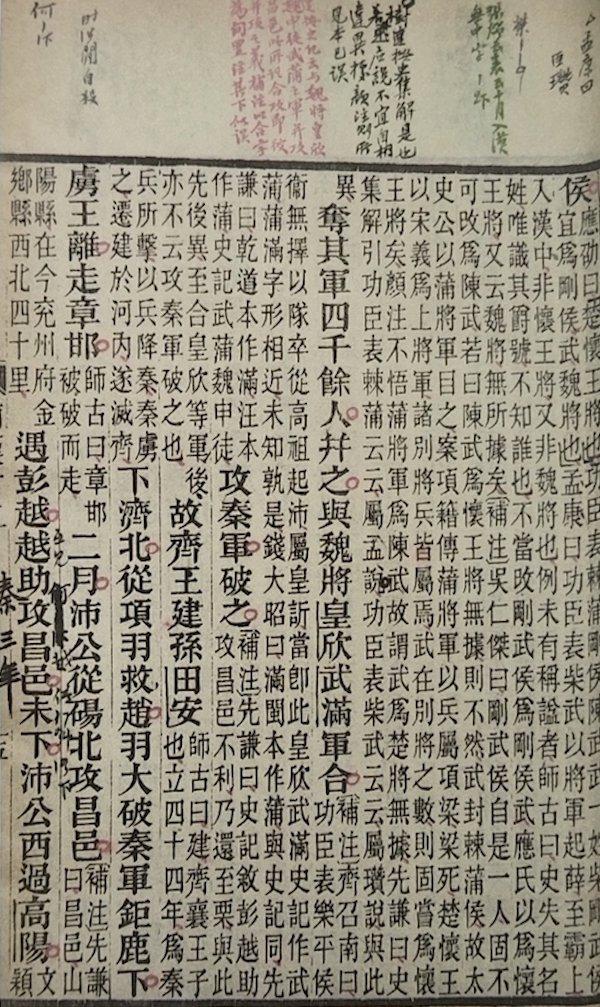 侯應劭曰楚懷王將也功臣表棘蒲剛侯陳武武一姓柴剛武侯
宜爲剛侯武魏將也孟康曰功臣表柴武以將軍起薛至霸上
入漢中非懷王將又非魏將也例未有稱諡者師古曰史失其名
姓唯識其爵號不知誰也不當改剛武侯爲剛侯武應氏以爲懷
王將又云魏將無所據矣補注吳仁傑曰剛武侯自是一人固不
可改爲陳武若曰陳武爲懷王將無據則不然武封棘蒲侯故太
史公以蒲將軍目之案項籍傳蒲將軍以兵屬項梁梁死楚懷王
以宋義爲上將軍諸別將兵皆屬焉武在別將之數則固當爲懷
王將矣顏注不悟蒲將軍爲陳武故謂武爲楚將無據先謙曰史
集解引功臣表棘蒲云云屬孟說功臣表柴武云云屬瓚說與此
異奪其軍四千餘人并之與魏將皇欣武滿軍合補注齊召南曰功臣表樂平侯
衞無擇以隊卒從高祖起沛屬皇訢當卽此皇欣武滿史記作武
蒲蒲滿字形相近未知孰是錢大昭曰滿閩本作蒲與史記同先
謙曰乾道本作滿汪本作蒲史記武蒲魏申徒攻秦軍破之補注先謙曰史記敘彭越助攻昌邑不利乃還至栗與此
先後異至合皇欣等軍亦不云攻秦軍破之也後故齊王建孫田安師古曰建齊襄王子也立四十四年爲秦
兵所擊以兵降秦秦虜之遷建於河內遂滅齊下濟北從項羽救趙羽大破秦軍鉅鹿下
虜王離走章邯師古曰章邯被破而走二月沛公從碭北攻昌邑補注先謙曰昌邑山
陽縣在今兗州府金鄉縣西北四十里遇彭越越助攻昌邑未下沛公西過高陽文穎
秦三年